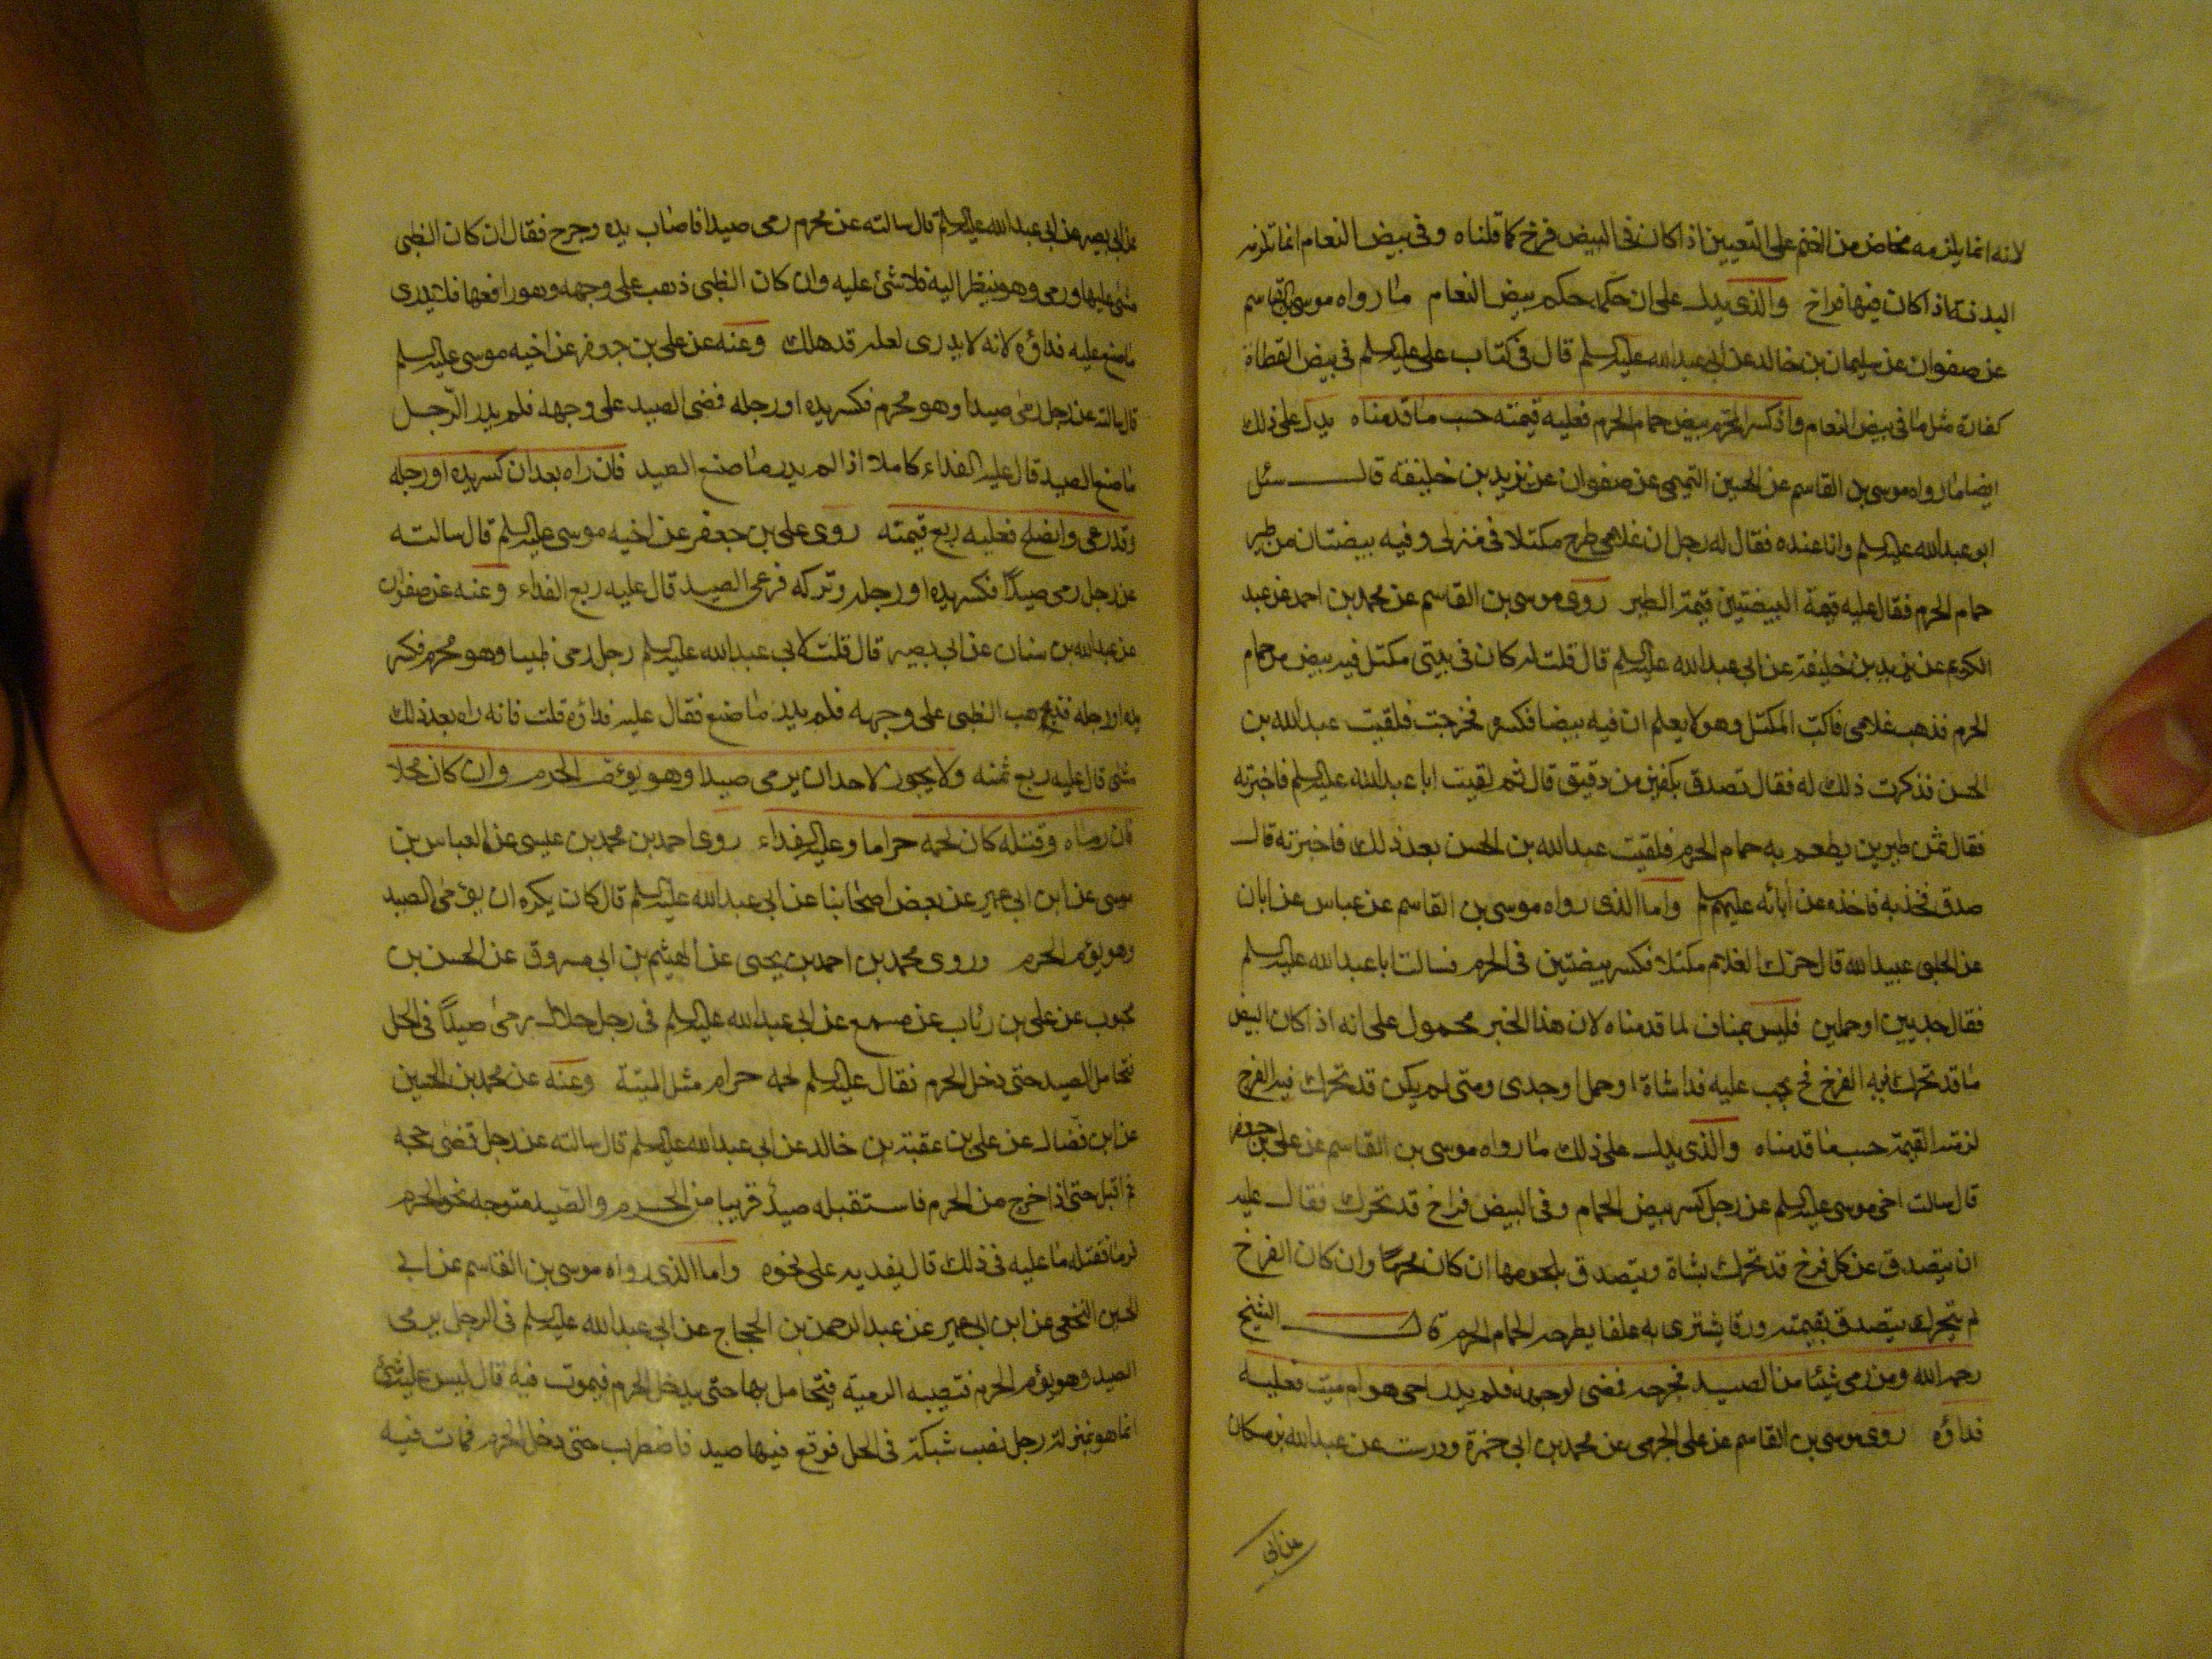 لانه انما يلزمه مخاض من الغنم على التعيين اذا كان فى البيض فرخ كما قلناه وفى بيض النعام انما تلزمه
البدنة اذا كان فيها فراخ والذى يدل على ان حكمه حكم بيض النعام ما رواه موسى بن القاسم
عن صفوان عن سليمان بن خالد عن ابى عبد الله عليه السلم قال فى كتاب على عليه السلم فى بيض القطاة
كفارة مثل ما فى بيض النعام واذا كسر المحرم بيض حمام الحرم فعليه قيمته حسب ما قدمناه يدل على ذلك
ايضا ما رواه موسى بن القاسم عن الحسين التميمى عن صفوان عن يزيد بن خليفة قال سئل
ابو عبد الله عليه السلم وانا عنده فقال له رجل ان غلامى طرح مكتلا فى منزلى وفيه بيضتان من طير
حمام الحرم فقال عليه قيمة البيضتين قيمة الطير روى موسى بن القاسم عن محمد بن احمد عن عبد
الكريم عن يزيد بن خليفة عن ابى عبد الله عليه السلم قال قلت له كان فى بيتى مكتل فيه بيض من حمام
الحرم فذهب غلامى فاكب المكتل وهو لا يعلم ان فيه بيضا فكسره فخرجت فلقيت عبد الله بن
الحسن فذكرت ذلك له فقال تصدق بكفين من دقيق قال ثم لقيت ابا عبد الله عليه السلم فاخبرته
فقال ثمن طيرين يطعم به حمام الحرم فلقيت عبد الله بن الحسن بعد ذلك فاخبرته قال
صدق فخذ به فاخذه عن أبائه عليهم السلم واما الذى رواه موسى بن القاسم عن عباس عن ابان
عن الحلبى عبيد الله قال حرك الغلام مكتلا فكسر بيضتين فى الحرم فسالت ابا عبد الله عليه السلم
فقال جديين او حملين فليس بمناف لما قدمناه لان هذا الخبر محمول على انه اذا كان البيض
ما قد تحرك فيه الفرخ فح يجب عليه فداشاة او حمل او جدى ومتى لم يكن قد تحرك فيه الفرخ
لزمته القيمة حسب ما قدمناه والذى يدل على ذلك ما رواه موسى بن القاسم عن على بن جعفر
قال سالت اخى موسى عليه السلم عن رجل كسر بيض الحمام وفى البيض فراخ قد تحرك فقال عليه
ان يتصدق عن كل فرخ قد تحرك بشاة ويتصدق بلحومها ان كان محرما وان كان الفرخ
لم يتحرك يتصدق بقيمته ورقا يشترى به علفا يطرحه لحمام الحرم قال الشيخ
رحمه الله ومن رمى شيئا من الصيد فجرحه فمضى لوجهه فلم يدر احى هو ام ميت فعليه
فداؤه روى موسى بن القاسم عن على الجرمى عن محمد بن ابى حمزة ودرست عن عبد الله بن مسكان
عن ابى
عن ابى بصير عن ابى عبد الله عليه السلم قال سالته عن محرم رمى صيدا فاصاب يده وجرح فقال ان كان الظبى
مشى عليها ورعى وهو ينظر اليه فلا شئ عليه وان كان الظبى ذهب على وجهه وهو رافعها فلا يدرى
ما صنع عليه فداؤه لانه لا يدرى لعله قد هلك وعنه عن على بن جعفر عن اخيه موسى عليه السلم
قال سالته عن رجل رمى صيدا وهو محرم فكسر يده او رجله فمضى الصيد على وجهه فلم يدر الرجل
ما صنع الصيد قال عليه الفداء كاملا اذا لم يدر ما صنع الصيد فان راه بعد ان كسر يده او رجله
وقد رعى وانصلح فعليه ربع قيمته روى على بن جعفر عن اخيه موسى عليه السلم قال سالته
عن رجل رمى صيدا فكسر يده او رجله وتركه فرعى الصيد قال عليه ربع الفداء وعنه عن صفوان
عن عبد الله بن سنان عن ابى بصير قال قلت لابى عبد الله عليه السلم رجل رمى ظبيا وهو محرم فكسر
يده او رجله فذهب الظبى على وجهه فلم يدر ما صنع فقال عليه فداؤه قلت فانه راه بعد ذلك
مشى قال عليه ربع ثمنه ولا يجوز لاحد ان يرمى صيدا وهو يؤم الحرم وان كان محلا
فان رماه وقتله كان لحمه حراما وعليه الفداء روى احمد بن محمد بن عيسى عن العباس بن
موسى عن ابن ابى عمير عن بعض اصحابنا عن ابى عبد الله عليه السلم قال كان يكره ان يرمى الصيد
وهو يؤم الحرم وروى محمد بن احمد بن يحيى عن الهيثم بن ابى مسروق عن الحسن بن
محبوب عن على بن رئاب عن مسمع عن ابى عبد الله عليه السلم فى رجل حلال رمى صيدا فى الحل
فتحامل الصيد حتى دخل الحرم فقال عليه السلم لحمه حرام مثل الميتة وعنه عن محمد بن الحسين
عن ابن فضال عن على بن عقبة بن خالد عن ابى عبد الله عليه السلم قال سالته عن رجل قضى حجه
ثم اقبل حتى اذا خرج من الحرم فاستقبله صيد قريبا من الحرم والصيد متوجه نحو الحرم
فرماه فقتله ما عليه فى ذلك قال يفديه على نحوه واما الذى رواه موسى بن القاسم عن ابى
الحسين النخعى عن ابن ابى عمير عن عبد الرحمن بن الحجاج عن ابى عبد الله عليه السلم فى الرجل يرمى
الصيد وهو يؤم الحرم فتصيبه الرمية فيتحامل بها حتى يدخل الحرم فيموت فيه قال ليس عليه شئ
انما هو بمنزلة رجل نصب شبكة فى الحل فوقع فيها صيد فاضطرب حتى دخل الحرم فمات فيه